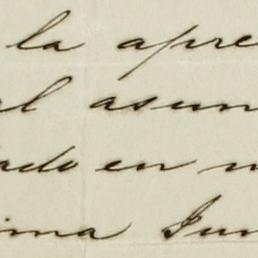 la apre
al asun
ado en m
ima Jun